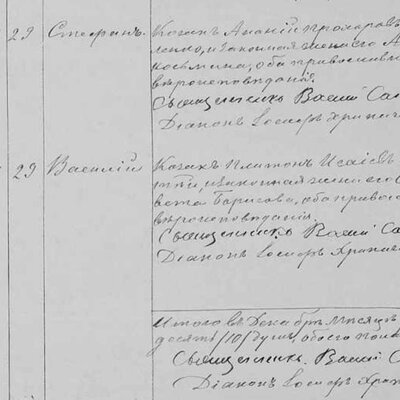 29 Стефанъ. Козакъ Ананій Прохоров
ленко, и законная жена его А
Козьмина, оба православн
вѣроисповѣданія.
Священникъ Васил
Діаконъ Іосифъ Храпа
29 Василій Козакъ Платонъ Исаіев
и законная жена его
вета Борисова, оба право
вѣроисповѣданія.
Священникъ Васил
Діаконъ Іосифъ Храпа
Итого въ Декабрѣ мѣсяцѣ
десять /10/ душъ, обоего пола
Священникъ Васил
Діаконъ Іосифъ Храп